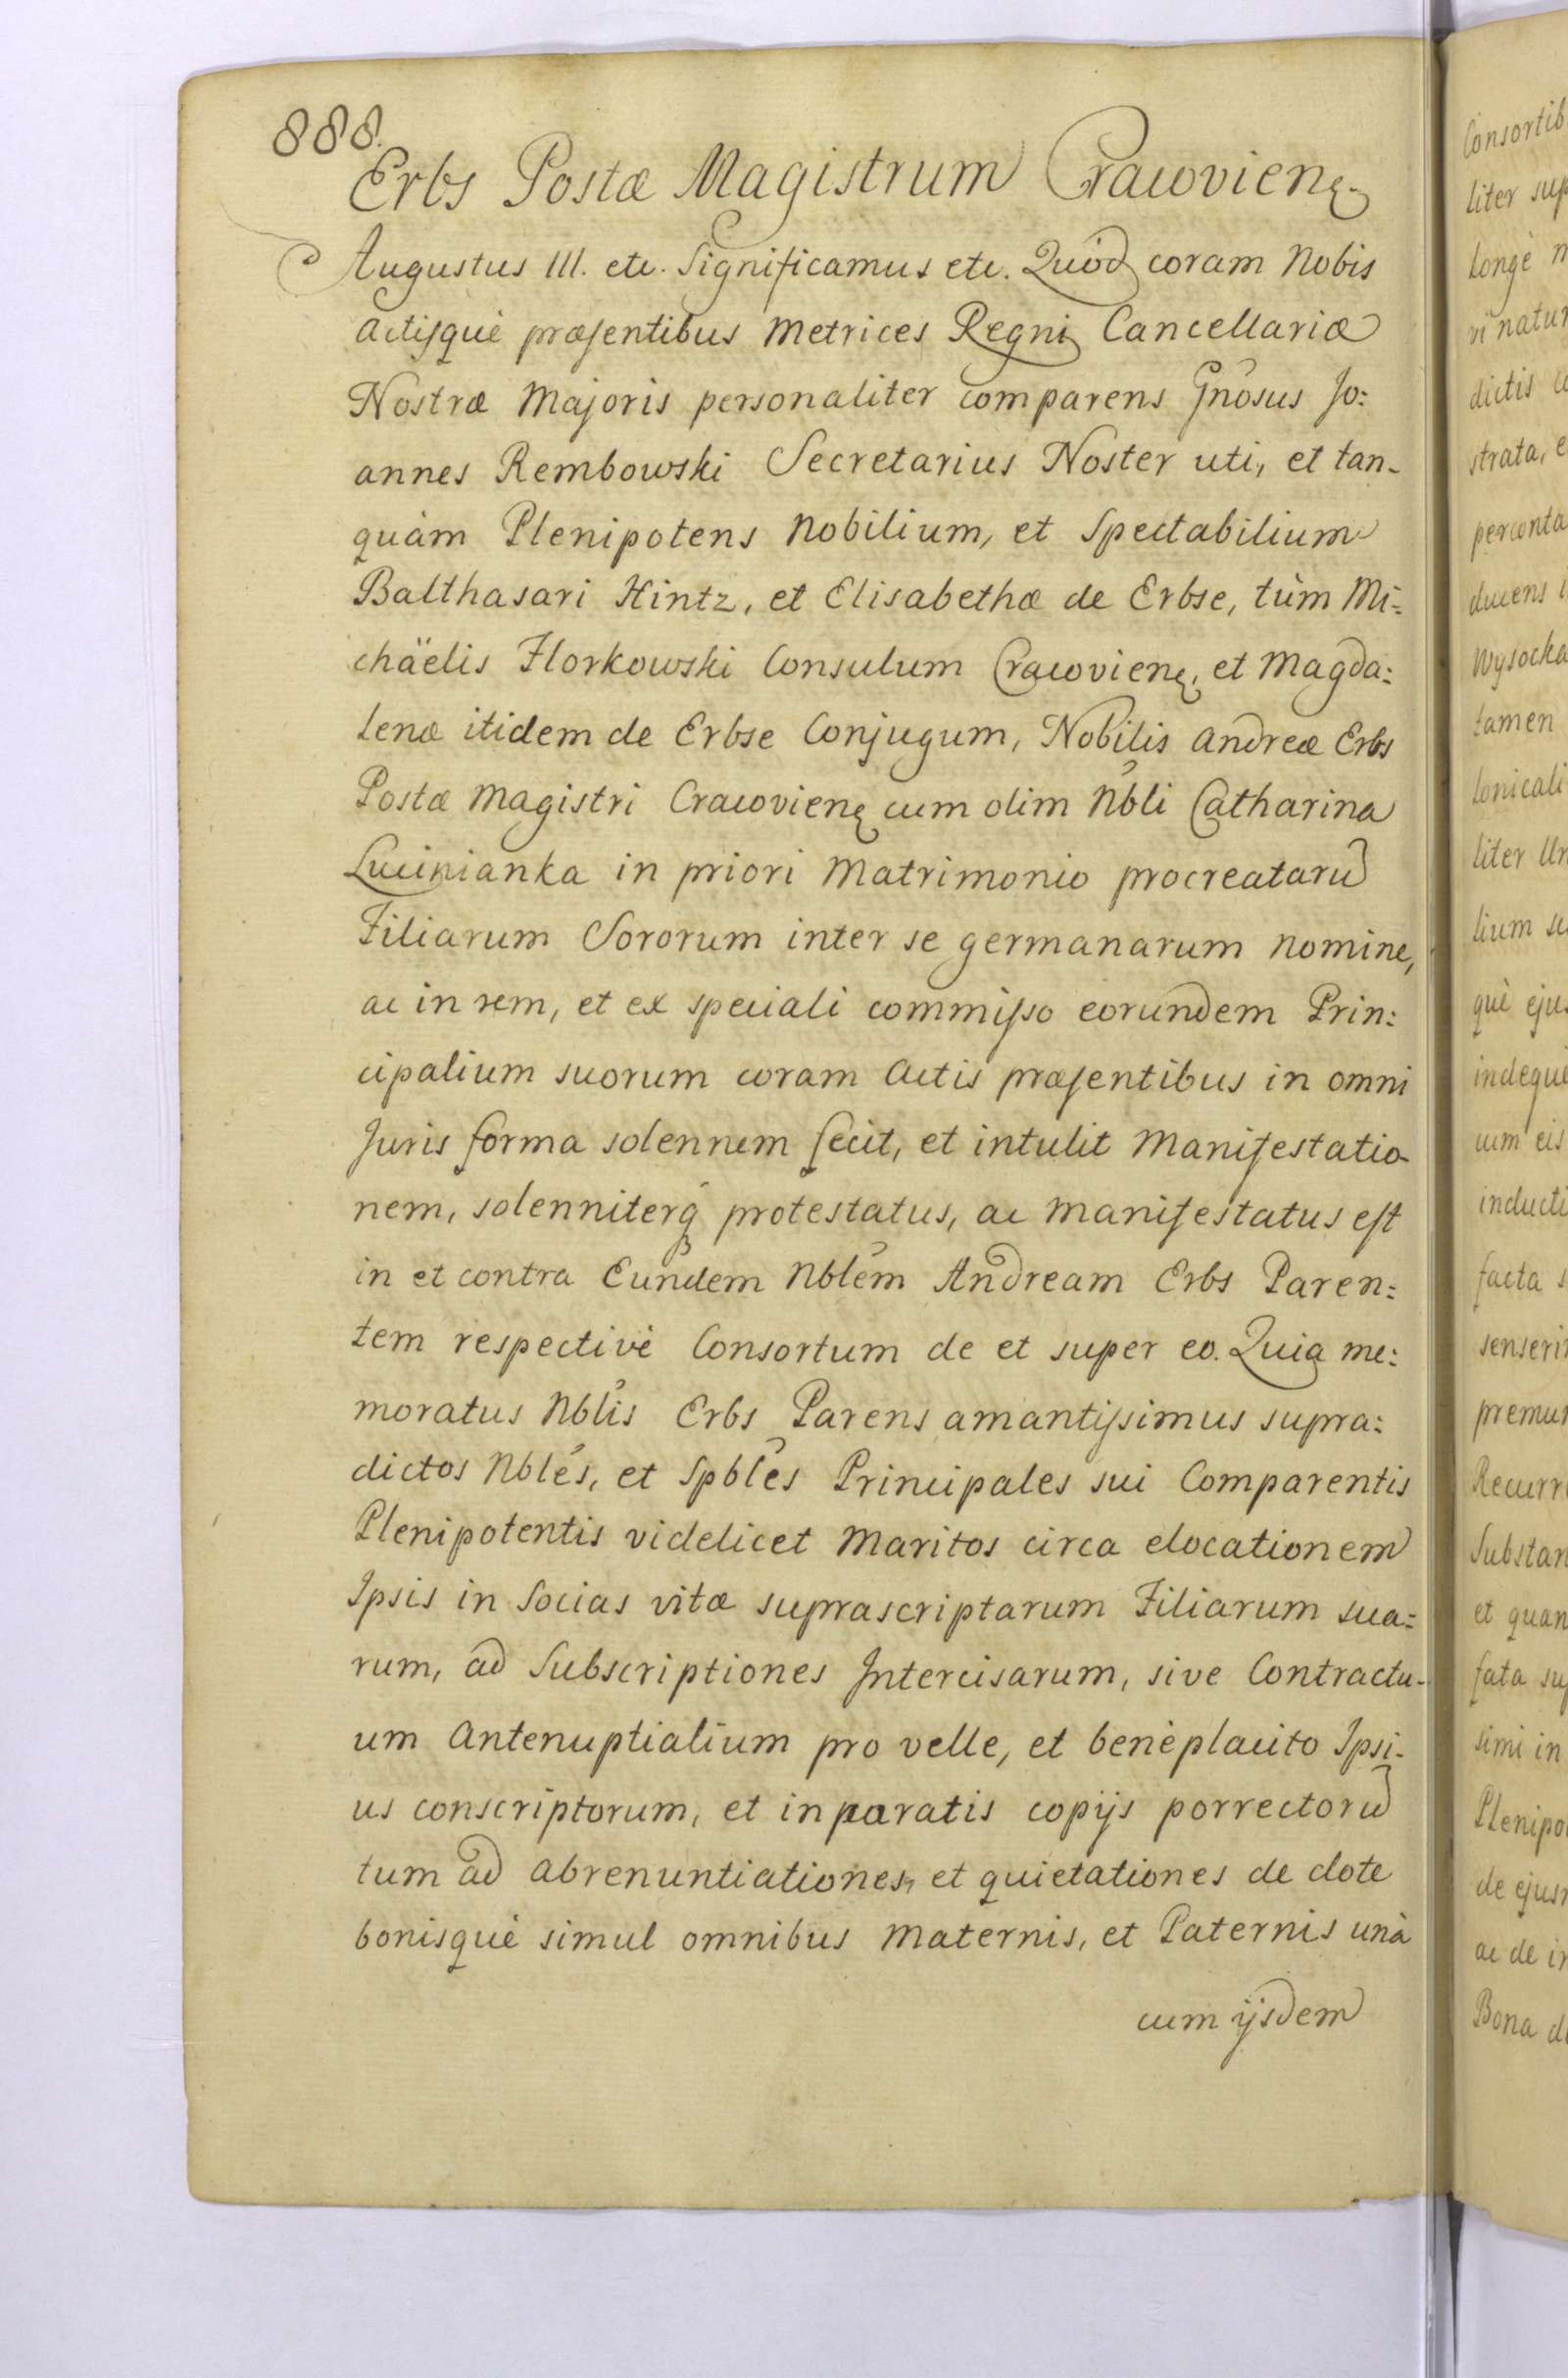 888.
Erbs Postæ Magistrum Cracovienę
Augustus III. etc. Significamus etc. Quòd coram Nobis
Actisquè præsentibus Metrices Regni Cancellariæ
Nostræ Majoris personaliter comparens Gnõsus Jo:
annes Rembowski Secretarius Noster uti, et tan-
quàm Plenipotens Nobilium, et Spectabilium
Balthasari Hintz, et Elisabethæ de Erbse, tùm Mi=
chäelis Florkowski Consulum Cracovienę, et Magda:
lenæ itidem de Erbse Conjugum, Nobilis Andreæ Erbs
Postæ Magistri Cracovienę cum olim Nbli Catharina
Lucinianka in priori Matrimonio procreatarũ
Filiarum Sororum inter se germanarum nomine,
ac in rem, et ex speciali commisso eorundem Prin:
cipalium suorum coram Actis præsentibus in omni
Juris forma solennem fecit, et intulit Manifestatio-
nem, solenniterq̃ protestatus, ac manifestatus est
in et contra Eundem Nblẽm Andream Erbs Paren:
tem respectivè Consortum de et super eo. Quia me:
moratus Nblis Erbs Parens amantissimus supra:
dictos Nblẽs, et Spblẽs Principales sui Comparentis
Plenipotentis videlicet Maritos circa elocationem
Ipsis in Socias vitæ suprascriptarum Filiarum sua=
rum, ad Subscriptiones Intercisarum, sive Contractu-
um Antenuptialium pro velle, et benèplacito Ipsi-
us conscriptorum, et in paratis copijs porrectorũ
tum ad Abrenuntiationes, et quietationes de dote
bonisquè simul omnibus Maternis, et Paternis unà
cum ijsdem
Consortib
liter sup
longè
natur
dictis
strata, e
percunta
ducens i
Wysocka
tamen
lonicali
liter Un
lium su
què ejus
indequè
cum eis
inducti
facta s
senseri
premun
Recurr
Substan
et quan
fata sup
simi in
Plenipo
de ejus
ac de in
Bona d